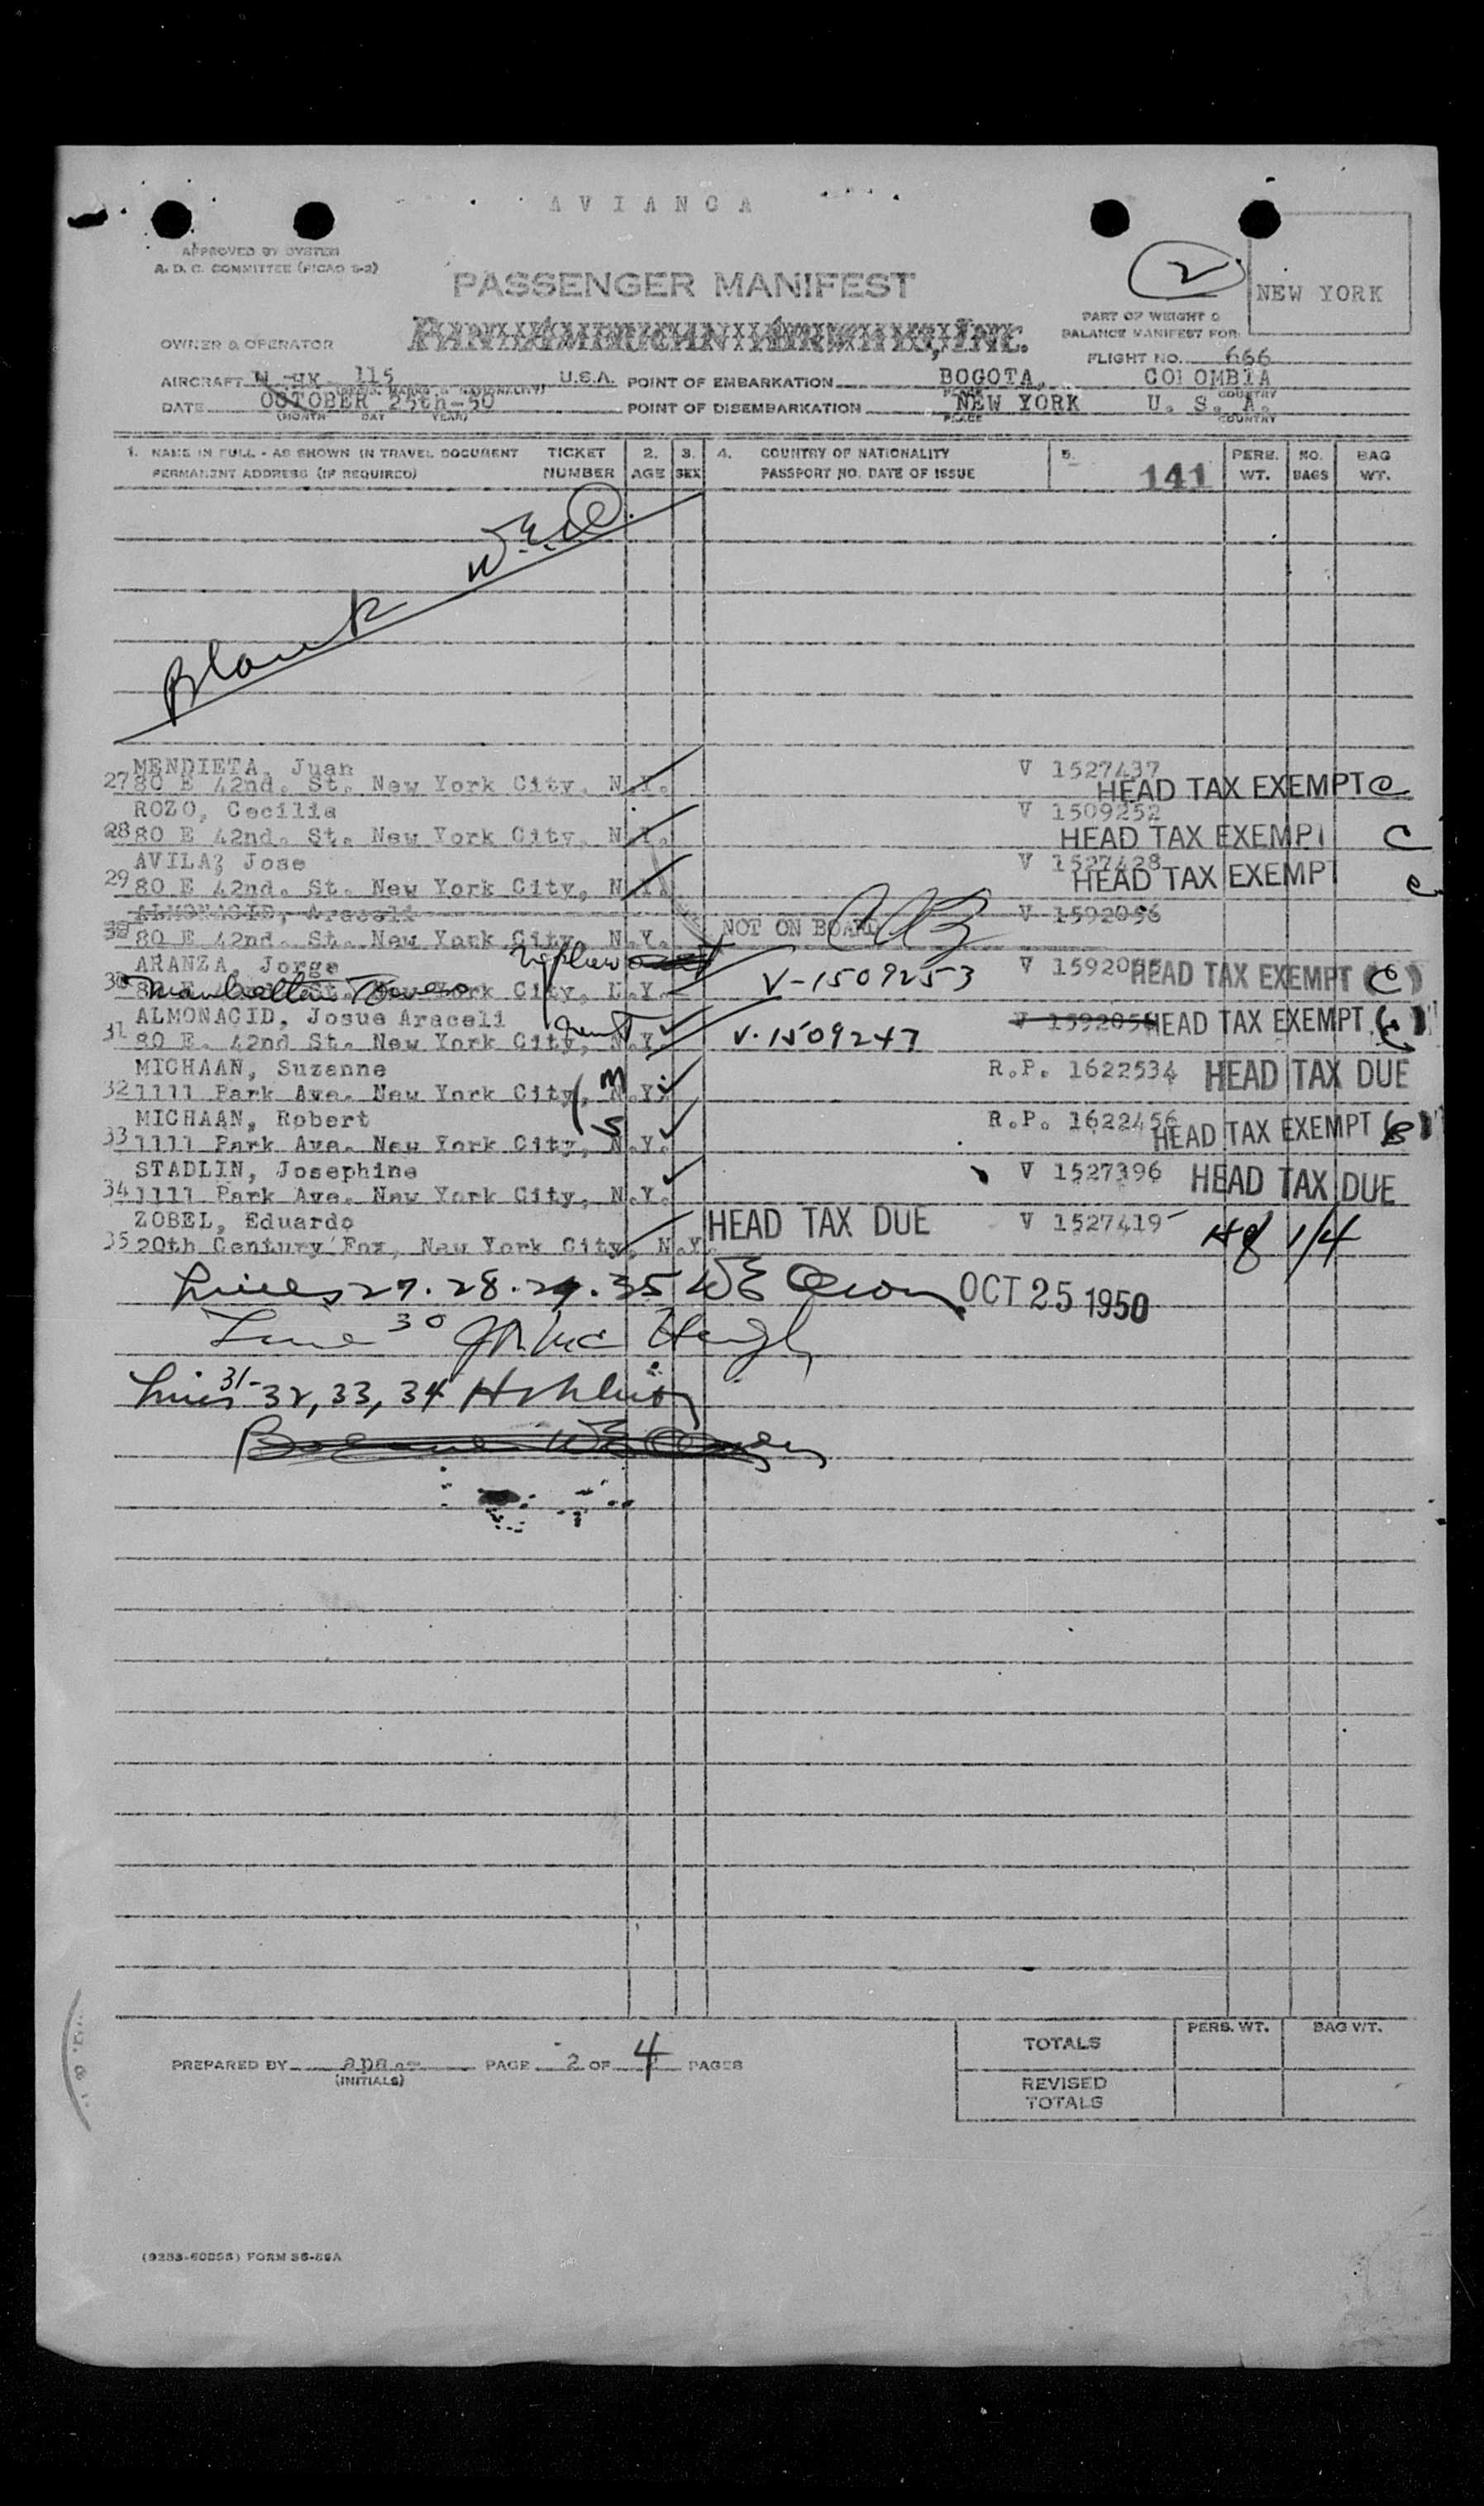 AVIANCA
APPROVED BY SYSTEM
A. D. C. COMMITTEE (PICAO S-2)
PASSENGER MANIFEST
2
NEW YORK
PAN AMERICAN AIRWAYS, INC.
PART OF WEIGHT &
BALANCE MANIFEST FOR:
OWNER & OPERATOR
FLIGHT NO. 666
AIRCRAFT HK 115 U.S.A. POINT OF EMBARKATION BOGOTA, COLOMBIA
DATE OCTOBER 25th-50 POINT OF DISEMBARKATION NEW YORK U. S. A.
(MONTH DAY YEAR) PLACE COUNTRY
1. NAME IN FULL - AS SHOWN IN TRAVEL DOCUMENT TICKET 2. 3. 4. COUNTRY OF NATIONALITY 5. PERS. NO. BAG
PERMANENT ADDRESS (IF REQUIRED) NUMBER AGE SEX PASSPORT NO. DATE OF ISSUE 141 WT. BAGS WT.
Blank
MENDIETA, Juan V 1527437
27 80 E 42nd. St. New York City, N.Y. HEAD TAX EXEMPT C
ROZO, Cecilia V 1509252
28 80 E 42nd. St. New York City, N.Y. HEAD TAX EXEMPT C
AVILA, Jose V 1527428
29 80 E 42nd. St. New York City, N.Y. HEAD TAX EXEMPT C
ALMONACID, Araceli NOT ON BOARD V 1592056
30 80 E 42nd. St. New York City, N.Y.
ARANZA, Jorge nephew V-1509253 V 1592055 HEAD TAX EXEMPT (C)
30 Manhattan Towers New York City, N.Y.
ALMONACID, Josue Araceli Aunt V-1509247 V 1592056 HEAD TAX EXEMPT
31 80 E. 42nd St. New York City, N.Y.
MICHAAN, Suzanne R.P. 1622534 HEAD TAX DUE
32 1111 Park Ave. New York City, N.Y. M
MICHAAN, Robert R.P. 1622456 HEAD TAX EXEMPT
33 1111 Park Ave. New York City, N.Y. S
STADLIN, Josephine V 1527396 HEAD TAX DUE
34 1111 Park Ave. New York City, N.Y.
ZOBEL, Eduardo HEAD TAX DUE V 1527419
35 20th Century Fox, New York City, N.Y. 1/4
Lines 27. 28. 29. 35 OCT 25 1950
Line 30
Lines 31- 32, 33, 34
PREPARED BY apa. PAGE 2 OF 4 PAGES
(INITIALS)
PERS. WT. BAG WT.
TOTALS
REVISED
TOTALS